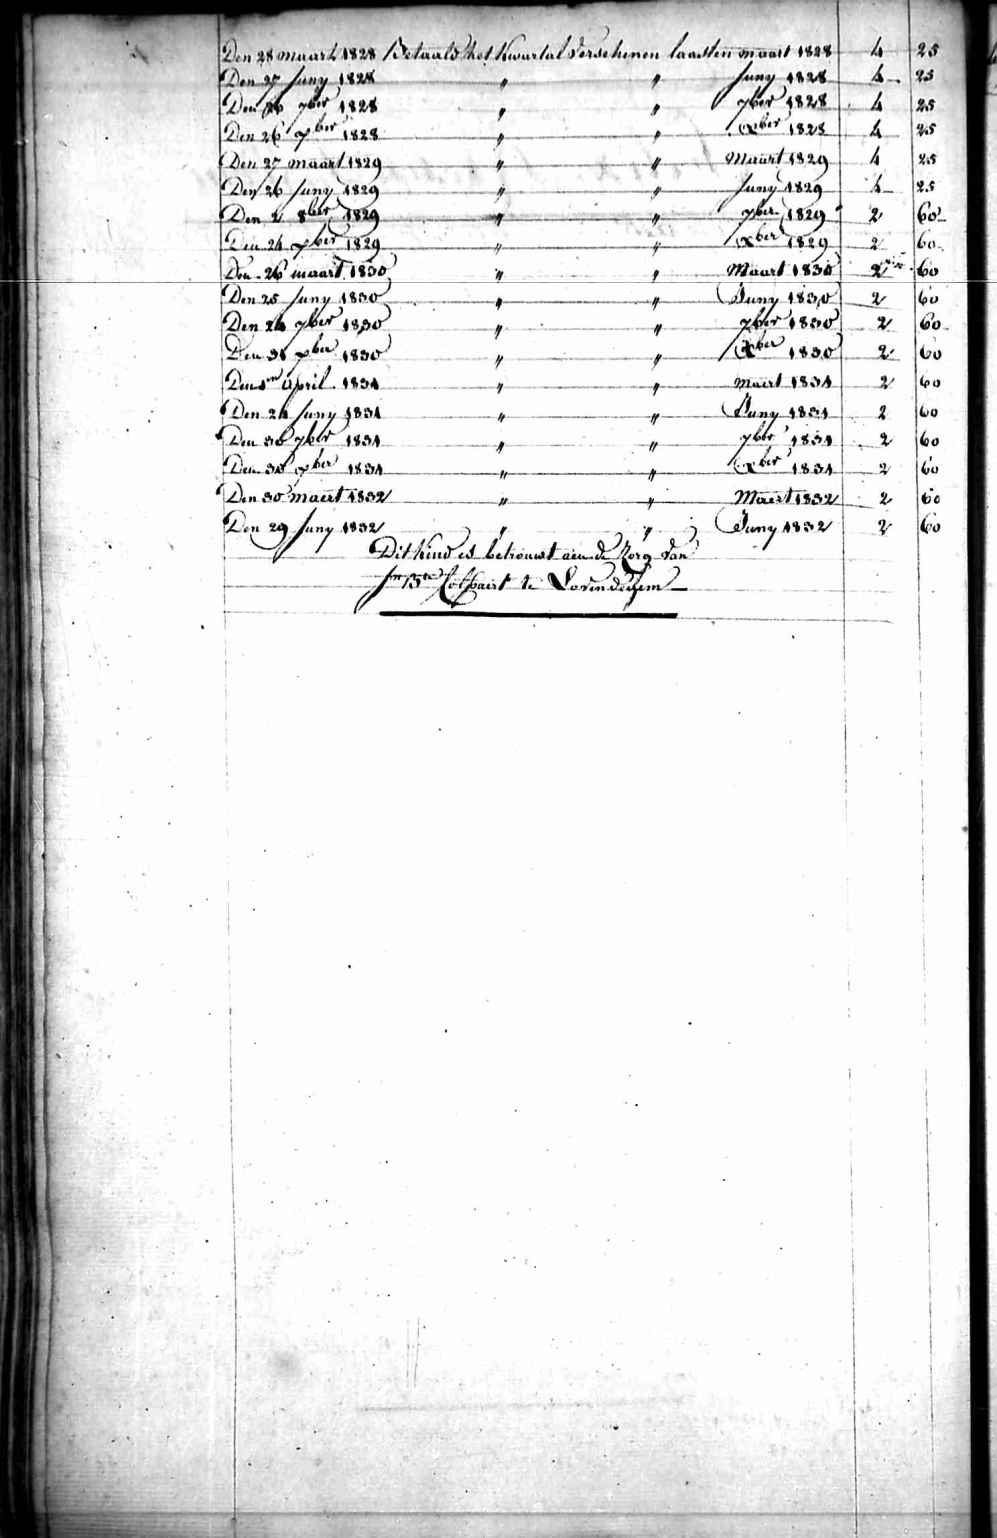 Den 28 maart 1828 Betaald het kwartal verschenen laasten maart 1828 4 25
Den 27 Juny 1828 " " Juny 1828 4 25
Den 26 7ber 1828 " " 7ber 1828 4 25
Den 26 xber 1828 " " xber 1828 4 25
Den 27 maart 1829 " " Maart 1829 4 25
Den 26 Juny 1829 " " Juny 1829 4 25
Den 2 8ber 1829 " " 7ber 1829 2 60
Den 24 xber 1829 " " xber 1829 2 60
Den 26 maart 1830 " " Maart 1830 2 60
Den 25 Juny 1830 " " Juny 1830 2 60
Den 24 7ber 1830 " " 7ber 1830 2 60
Den 31 xber 1830 " " xber 1830 2 60
Den 1en April 1831 " " maert 1831 2 60
Den 24 Juny 1831 " " Juny 1831 2 60
Den 30 7ber 1831 " " 7ber 1831 2 60
Den 30 xber 1831 " " xber 1831 2 60
Den 30 maert 1832 " " Maert 1832 2 60
Den 29 Juny 1832 " " Juny 1832 2 60
Dit kind is betrouwt aen de Zorg van
te Lovendegem